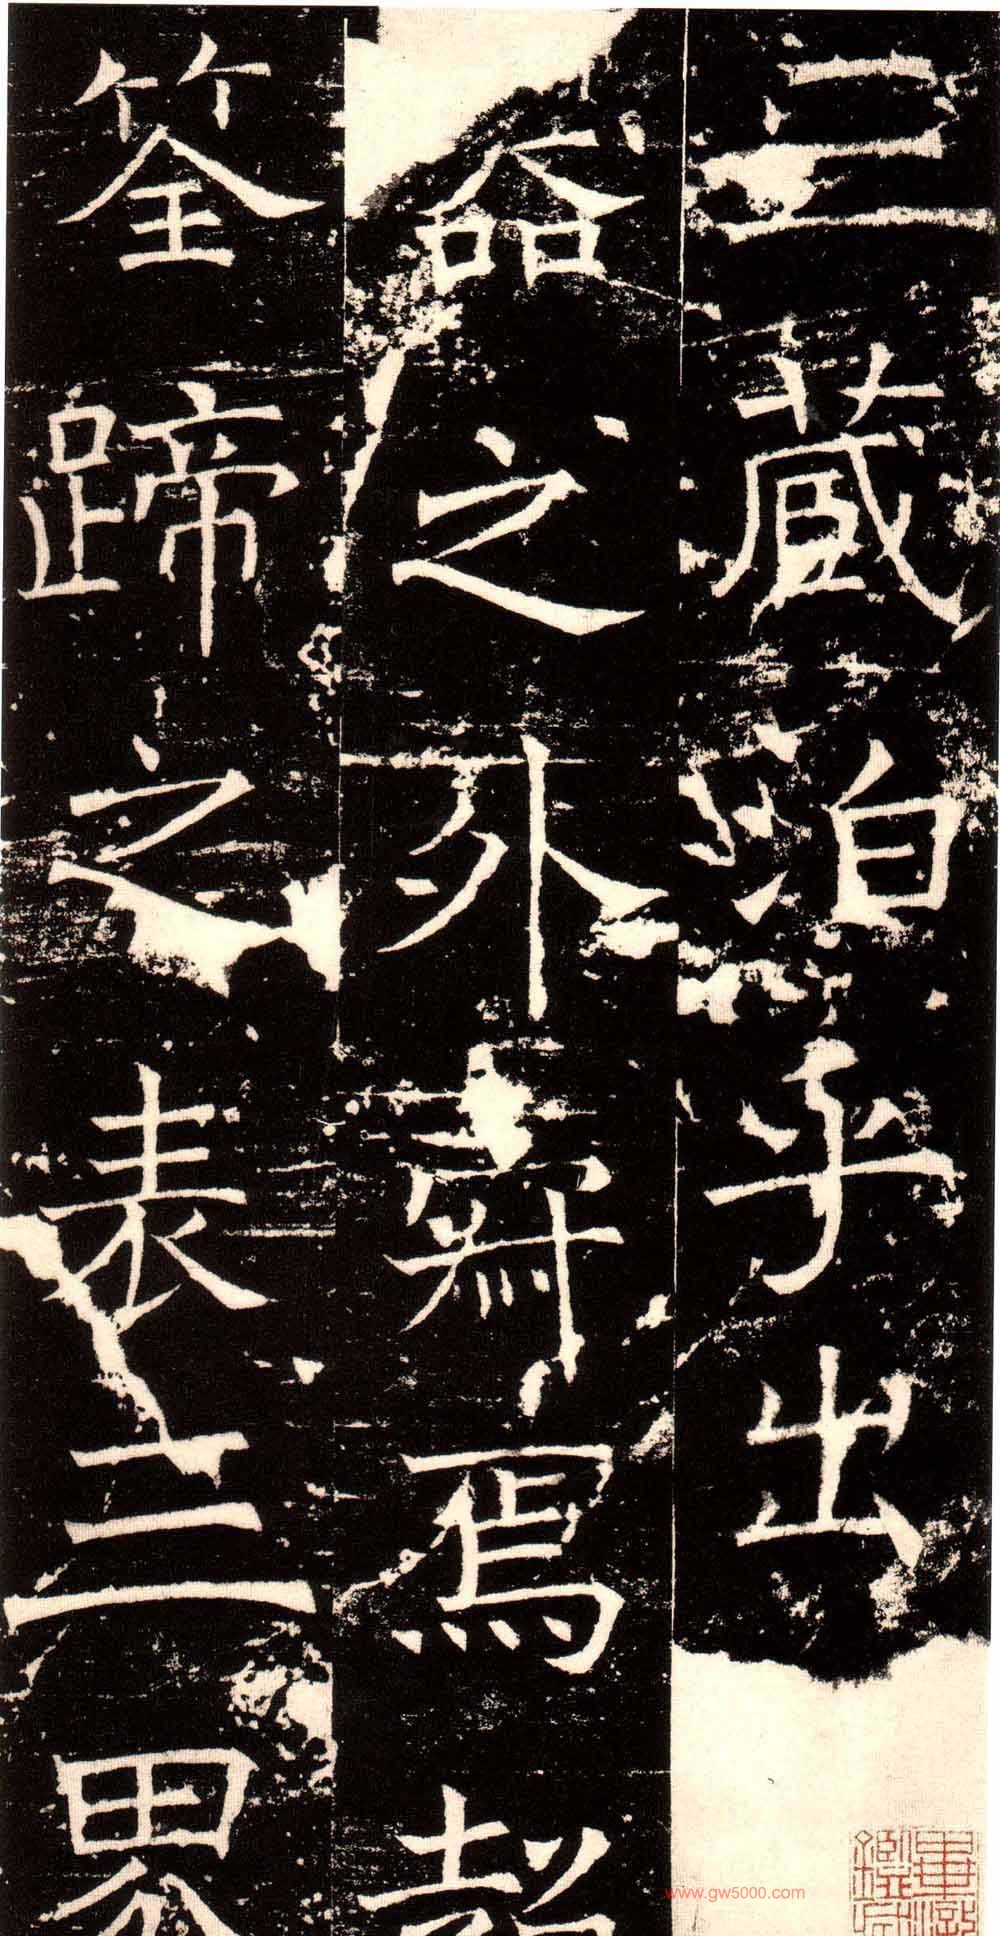 三藏泊乎出
器之外寂焉超
筌蹄之表三界
www.gw5000.com